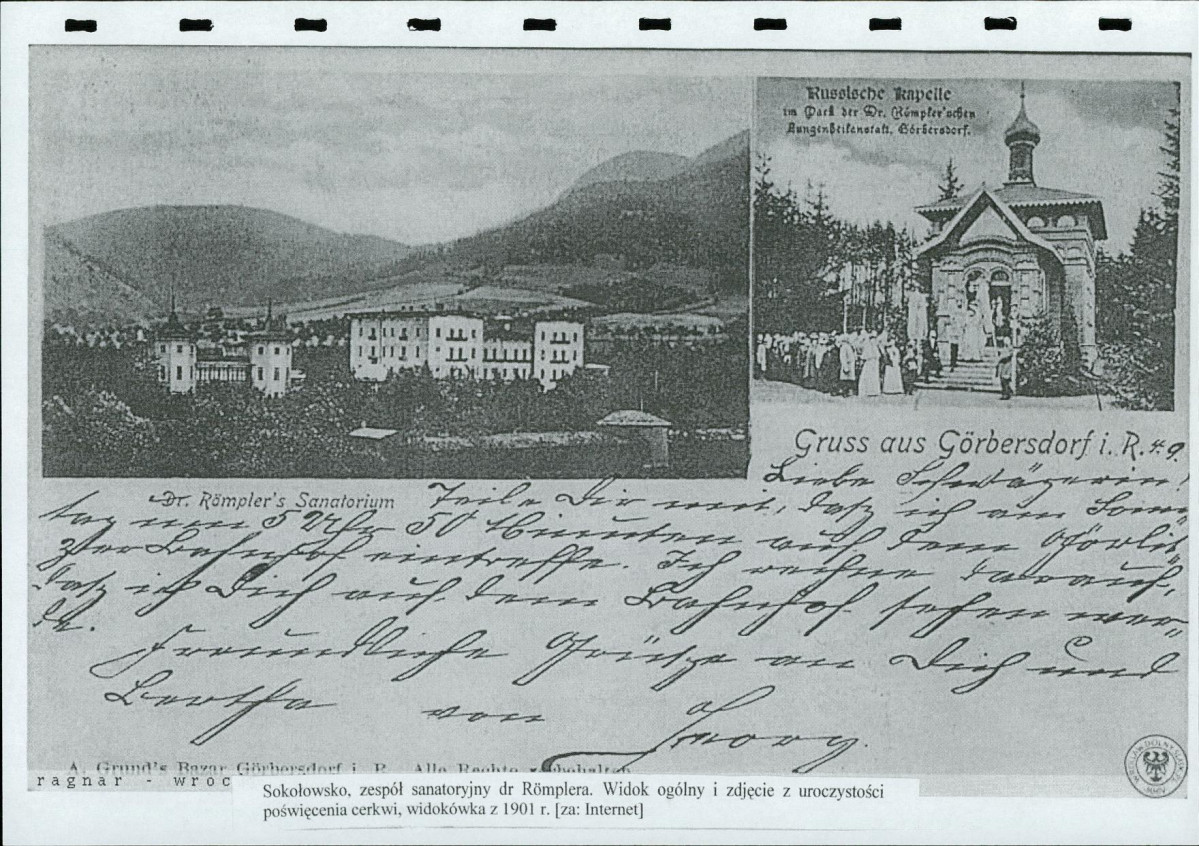 Russische Kapelle
im Park der Dr. Römpler'schen
Lungenheilanstalt, Görbersdorf.
Gruss aus Görbersdorf i. R. 4. 9.
Dr. Römpler's Sanatorium
Liebe Schwägerin!
Teile Dir mit, daß ich am Sonn
tag um 5 Uhr 50 Minuten auf dem Görlit
zer Bahnhof eintreffe. Ich rechne darauf,
daß ich Dich auf dem Bahnhof sehen wer
de.
Freundliche Grüße an Dich und
Bertha von
Georg.
A. Grund's Bazar Görbersdorf i. R. Alle Rechte vorbehalten
ragnar - wroc
Sokołowsko, zespół sanatoryjny dr Römplera. Widok ogólny i zdjęcie z uroczystości
poświęcenia cerkwi, widokówka z 1901 r. [za: Internet]